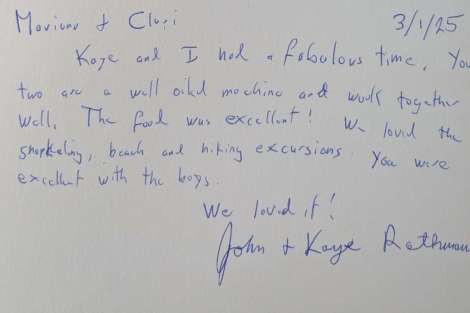 Mariano & Clusi 3/1/25
Kaye and I had a fabulous time. You
two are a well oiled machine and work together
well. The food was excellent! We loved the
snorkeling, beach and hiking excursions. You were
excellent with the boys.
We loved it!
John & Kaye Rathman